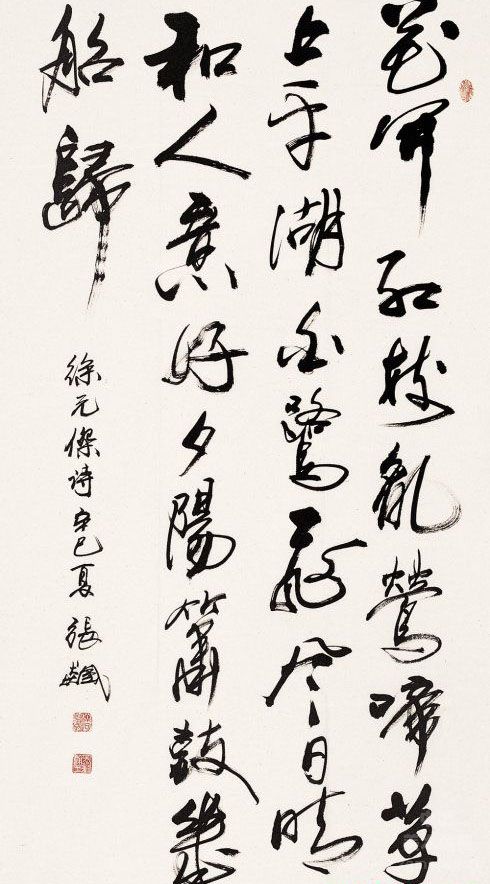 花開紅樹亂鶯啼草
長平湖白鷺飛風日晴
和人意好夕陽簫鼓幾
船歸
徐元傑詩辛巳夏張